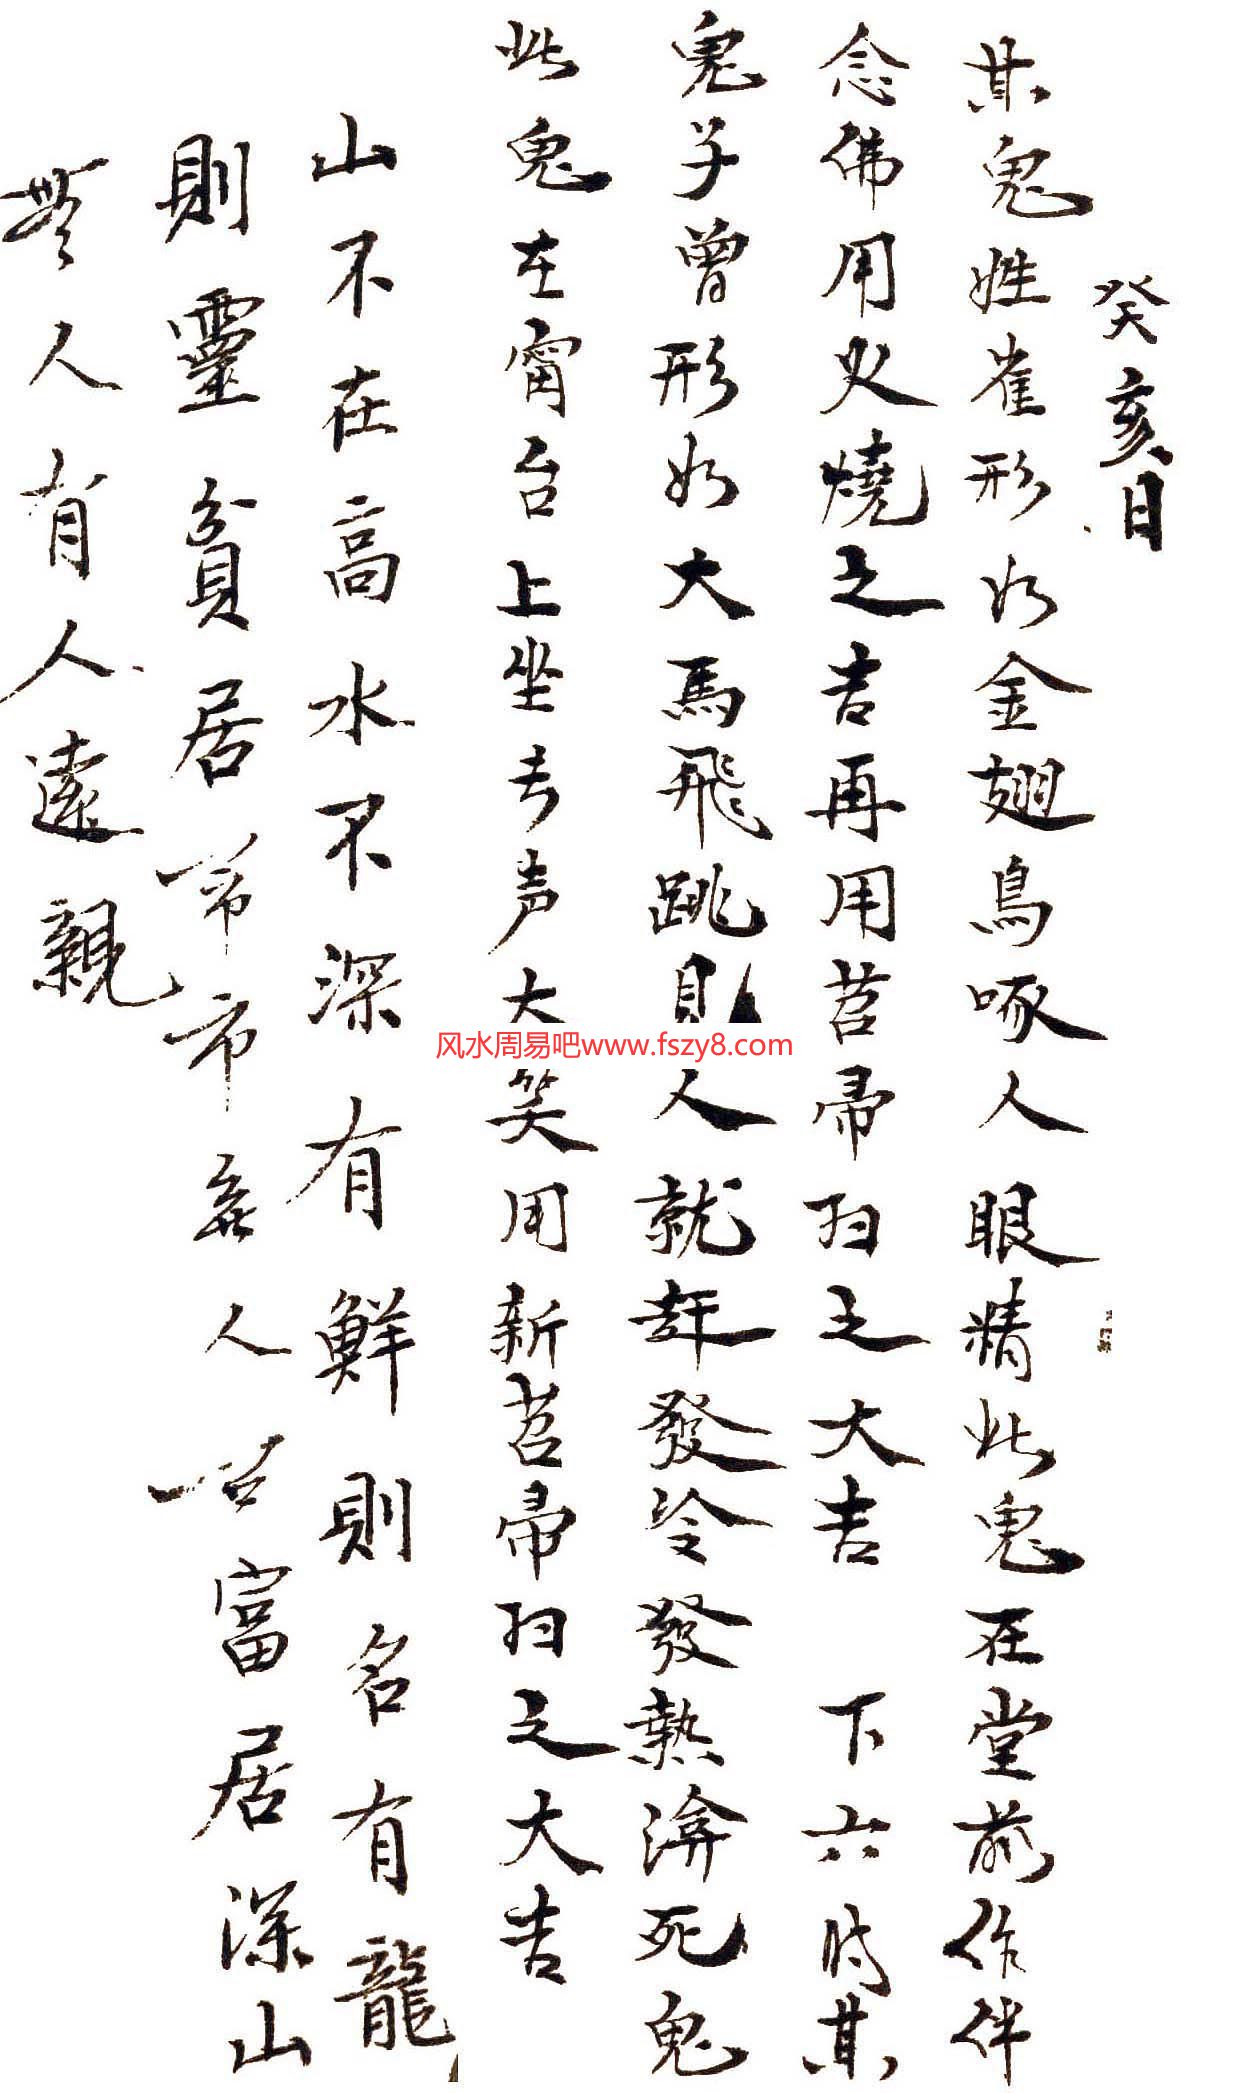 癸亥日
其鬼姓雀形如金翅鳥啄人眼精此鬼在堂前作伴
念佛用火燒之吉再用苕帚扫之大吉 下六时其
鬼子曾形如大馬飛跳見人就赶發冷發熱渰死鬼
此鬼在窗台上坐考声大笑用新苕帚扫之大吉
山不在高水不深有鮮則名有龍
則靈貧居帀市無人古富居深山
無人有人遠親
风水周易吧www.fszy8.com